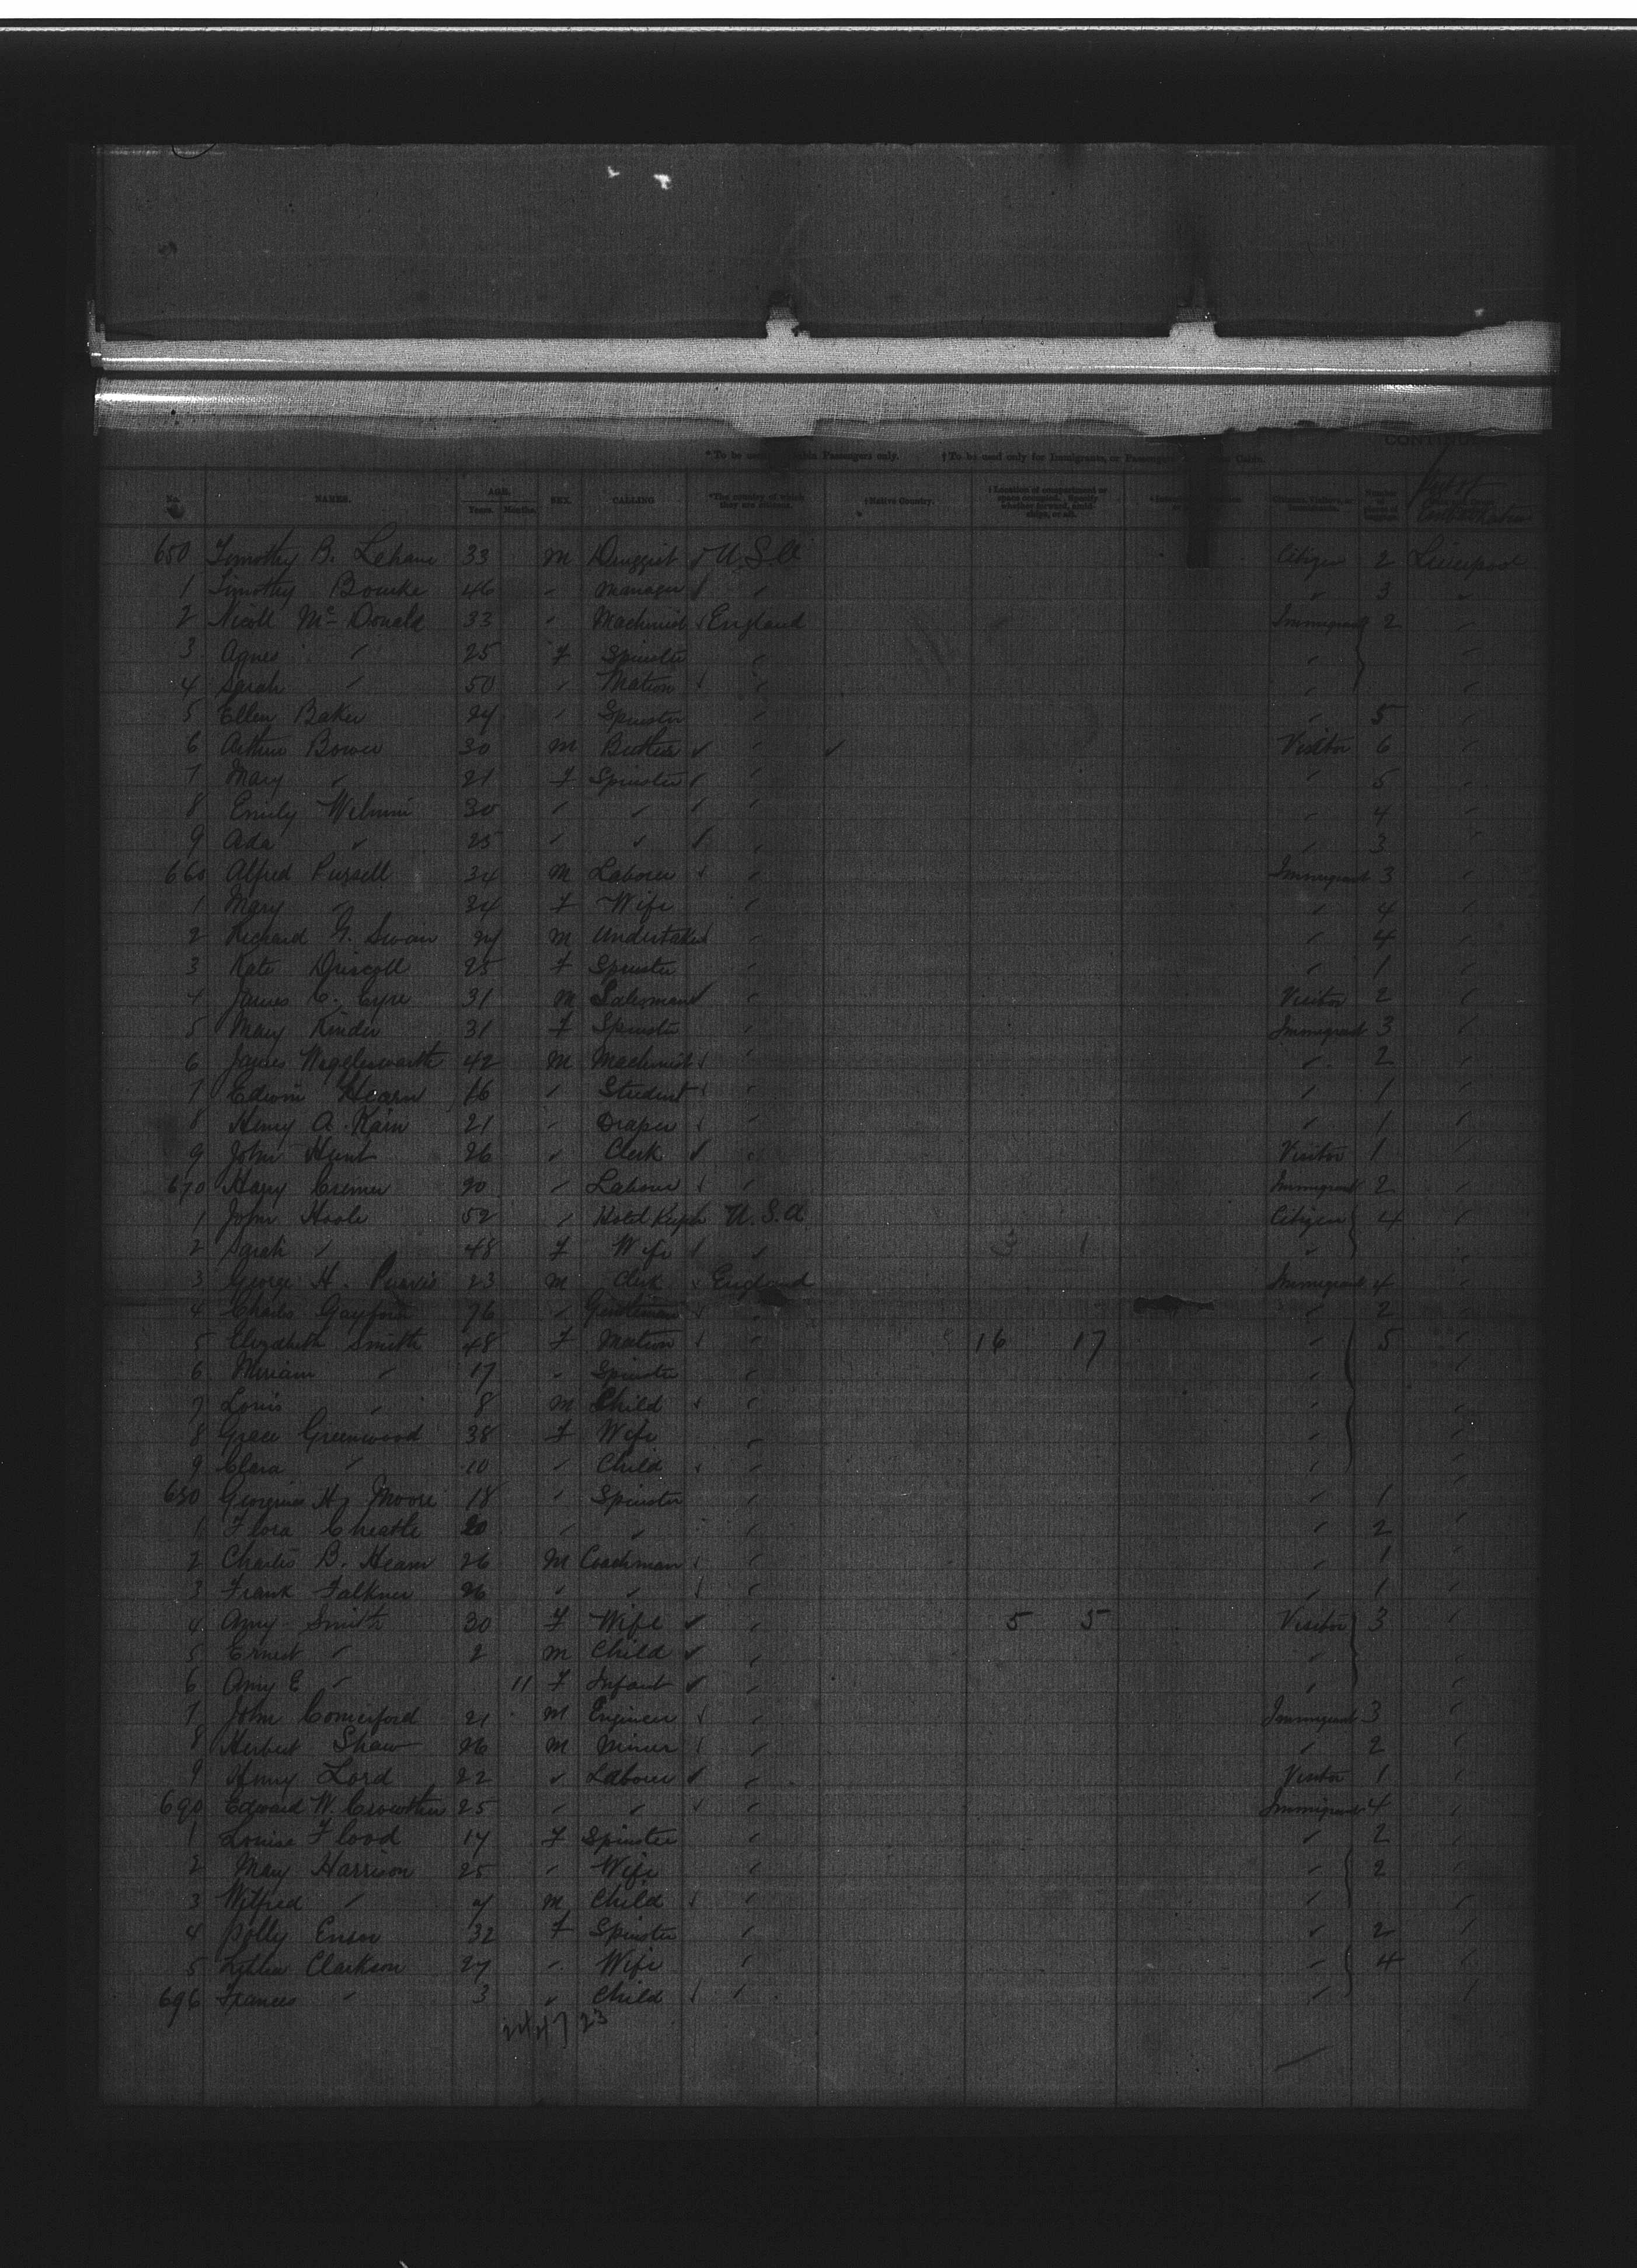 CONTINU
* To be used Cabin Passengers only. † To be used only for Immigrants, or Passengers Cabin.
No. NAMES. AGE. Years. Months. SEX. CALLING *The country of which they are citizens. †Native Country. †Location of compartment or space occupied. Number of pieces of luggage. Port of Embarkation
650 Timothy B. Lehane 33 M Druggist ✓ U.S.A Citizen 2 Liverpool
1 Timothy Bourke 46 " Manager " " 3 "
2 Nicoll Mc Donald 33 " Machinist England Immigrant 2 "
3 Agnes " 25 F Spinster " " "
4 Sarah " 50 " Matron " " "
5 Ellen Baker 24 " Spinster " " 5 "
6 Arthur Bower 30 M Butler ✓ " ✓ Visitor 6 "
7 Mary " 21 F Spinster " " 5 "
8 Emily 30 " " " " 4 "
9 Ada " 25 " " " " 3 "
660 Alfred Pursell 34 M Laborer " Immigrant 3 "
1 Mary " 24 F Wife " " 4 "
2 Richard G. Swan 24 M Undertaker " " 4 "
3 Kate Driscoll 25 F Spinster " " 1 "
4 James C. Eyre 31 M Salesman " Visitor 2 "
5 Mary Kinder 31 F Spinster " Immigrant 3 "
6 James Wigglesworth 42 M Machinist " " 2 "
7 Edwin Hearn 16 " Student " " 1 "
8 Henry A. Kain 21 " Draper " " 1 "
9 John Hunt 26 " Clerk ✓ " Visitor 1 "
670 Harry Cremer 20 " Labour " Immigrant 2 "
1 John Hoole 52 " Hotel Keeper U.S.A Citizen 4 "
2 Sarah " 48 F Wife " 3 1 " "
3 George H. Purvis 23 M Clerk England Immigrant 4 "
4 Charles Gayford 76 " Gentleman " " 2 "
5 Elizabeth Smith 48 F Matron " 16 17 " 5 "
6 Miriam " 17 " Spinster " " "
7 Louis " 8 M Child " " "
8 Grace Greenwood 38 F Wife " " "
9 Clara " 10 " Child " " "
680 Georgina H. Moore 18 " Spinster " " 1 "
1 Flora Cheatle 20 " " " " 2 "
2 Charles B. Hearn 26 M Coachman " " 1 "
3 Frank Falkner 26 " " " " 1 "
4 Amy Smith 30 F Wife ✓ " 5 5 Visitor 3 "
5 Ernest " 2 M Child ✓ " " "
6 Amy E " 11 F Infant ✓ " " "
7 John Comerford 21 M Engineer " Immigrant 3 "
8 Herbert Shaw 26 M Miner " " 2 "
9 Henry Lord 22 " Laborer ✓ " Visitor 1 "
690 Edward W. Crowther 25 " " " Immigrant 4 "
1 Louise Flood 17 F Spinster " " 2 "
2 Mary Harrison 25 " Wife " " 2 "
3 Wilfred " 4 M Child " " "
4 Polly Ensor 32 F Spinster " " 2 "
5 Lillie Clarkson 27 " Wife " " 4 "
696 Frances " 3 " Child " " "
23